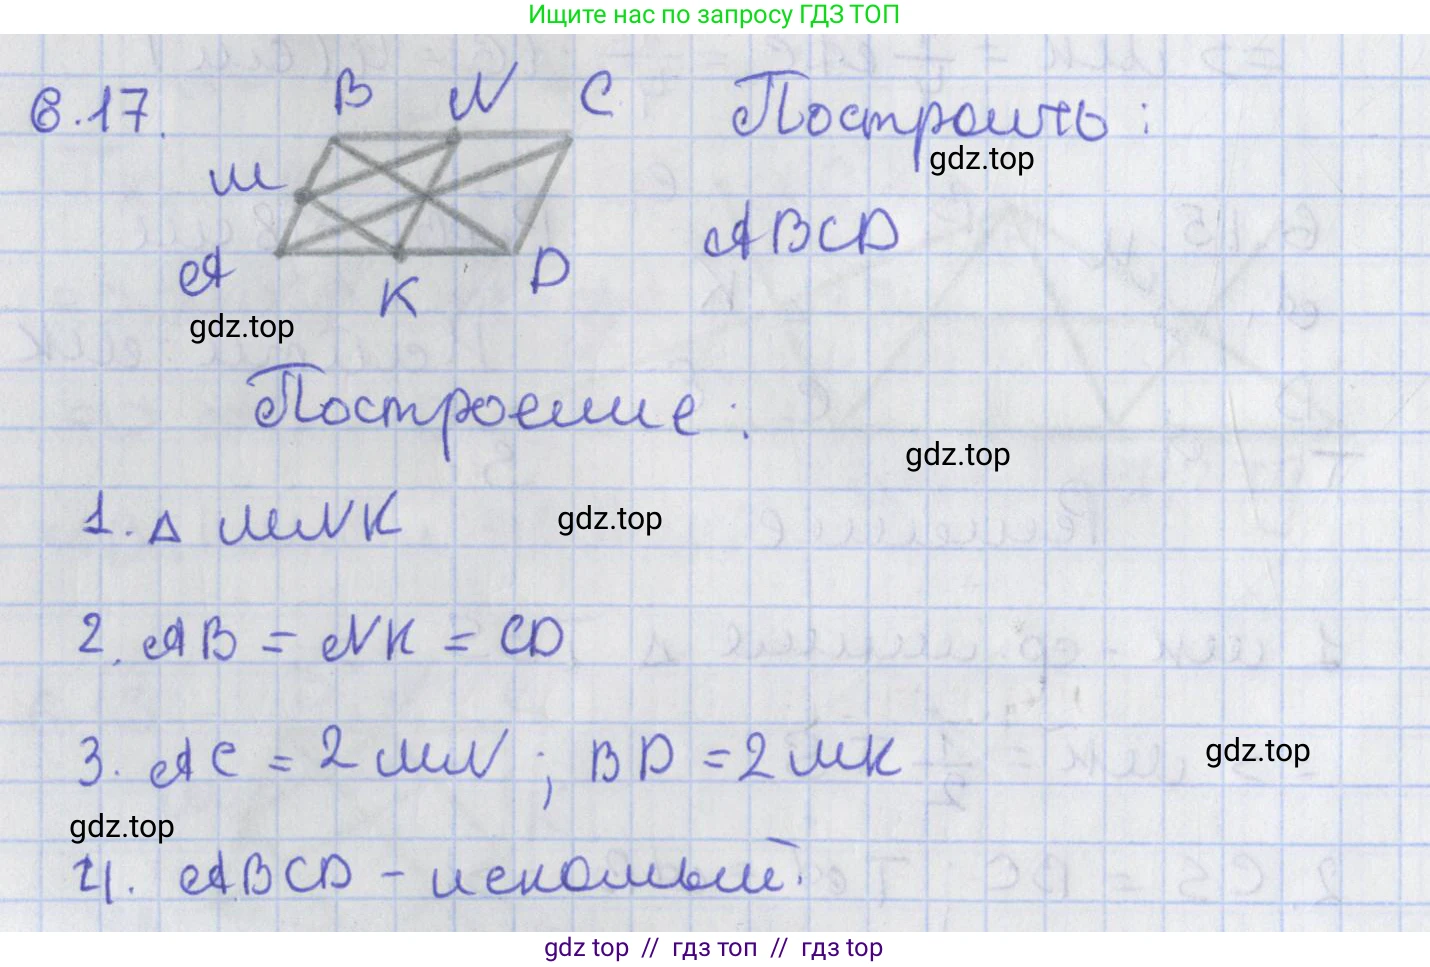 Ищите нас по запросу ГДЗ ТОП
6.17. B N C Построить:
gdz.top
M
ABCD
A K D
gdz.top
Построение:
gdz.top
1. Δ MNK
gdz.top
2. AB = NK = CD
3. AC = 2MN; BD = 2MK
gdz.top
gdz.top
4. ABCD - искомый.
gdz top // гдз топ // гдз top